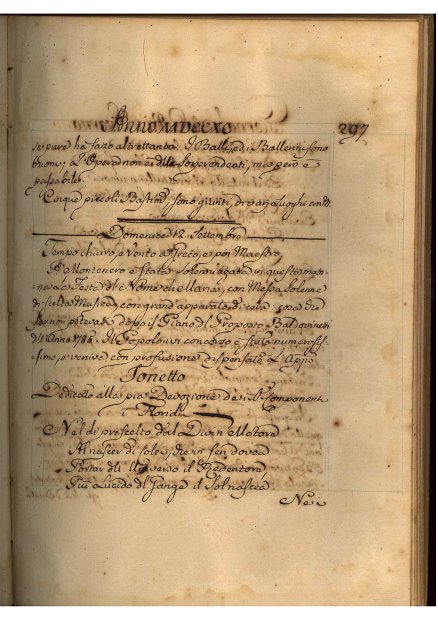 Anno MDCCXC
297
se pure ha fatto altrettanto: I Balli, ed i Ballerini sono
buoni; L'Opera non è delle Sorprendenti, ma però è
passabile.
Cinque piccoli Bastim. sono giunti, da varj Luoghi con
Domenica 12. Settembre
Tempo chiaro, e Vento a Greco, e poi Maestro
A Montenero è stata solennizzata in questa mat-
tina la Festa del Nome di Maria, con Messa solenne
di scelta Musica, con grand'apparato di cera, cosa che
far non potevasi dopo il Piano del Proposto Baldovinetti
dell'Anno 1788. Il Popolo ivi concorso è stato numerosis-
simo, e veniva con profusione dispensato L'App.o
Sonetto
Dedicato alla pia Devozione de i Componenti
i Rondò
Nel dì prescelto dal Divin Motore
Al nascer di sole, che in sen dovea
Portar all' Universo il Redentore
Più Lucido del Gange il Sol nascea
Ne i